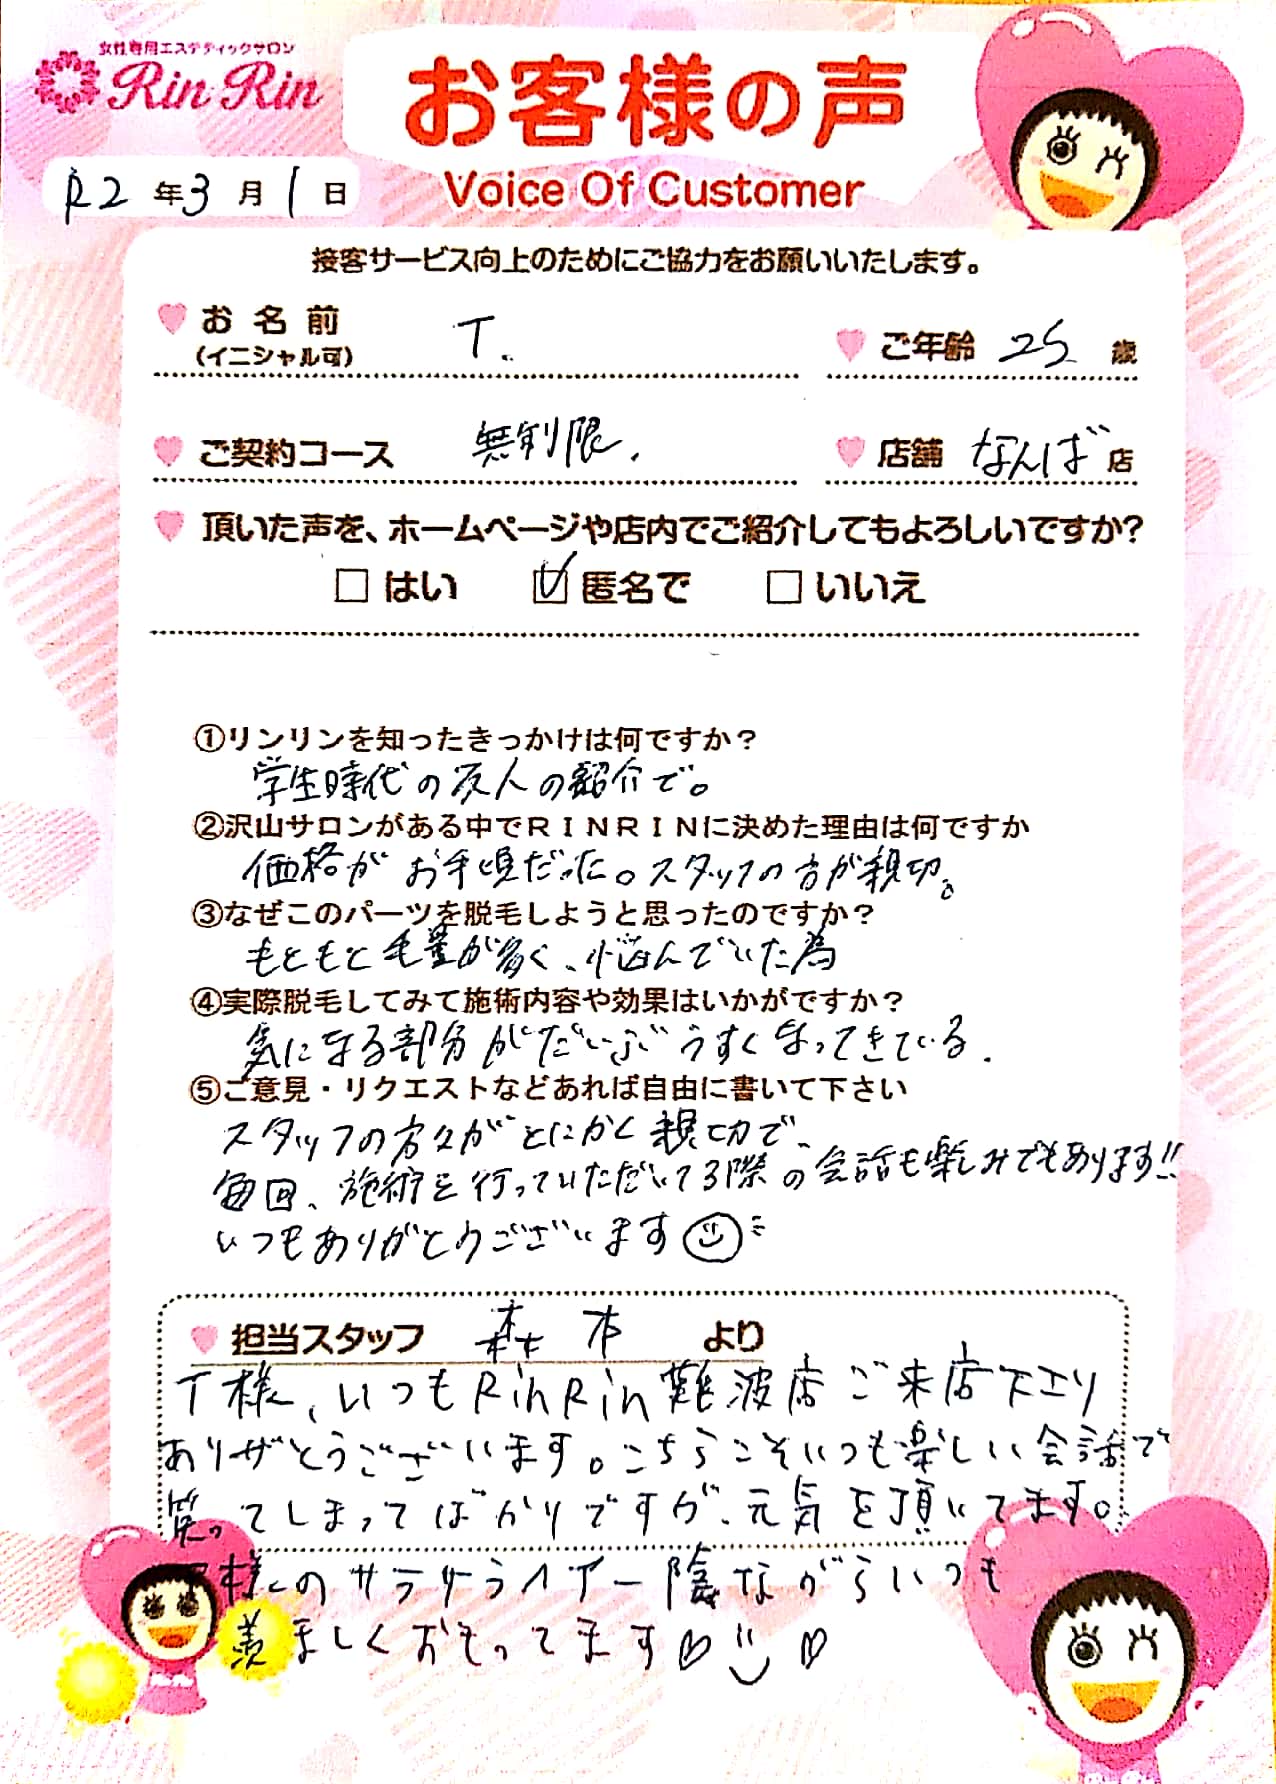 女性専用エステティックサロン
Rin Rin
お客様の声
Voice Of Customer
R2 年 3 月 1 日
接客サービス向上のためにご協力をお願いいたします。
お名前 T.
(イニシャル可)
ご年齢 25 歳
ご契約コース 無制限.
店舗 なんば 店
頂いた声を、ホームページや店内でご紹介してもよろしいですか?
はい 匿名で いいえ
①リンリンを知ったきっかけは何ですか？
学生時代の友人の紹介で。
②沢山サロンがある中でＲＩＮＲＩＮに決めた理由は何ですか
価格がお手頃だった。スタッフの方が親切。
③なぜこのパーツを脱毛しようと思ったのですか？
もともと毛量が多く、悩んでいた為
④実際脱毛してみて施術内容や効果はいかがですか？
気になる部分がだいぶうすくなってきている.
⑤ご意見・リクエストなどあれば自由に書いて下さい
スタッフの方々がとにかく親切で、
毎回、施術を行っていただいてる際の会話も楽しみでもあります!!
いつもありがとうございます
担当スタッフ 森本 より
T様、いつもRinRin難波店ご来店下エリ
ありがとうございます。こちらこそいつも楽しい会話で
笑ってしまってばかりですが、元気を頂いてます。
T様のサラサラヘアー陰ながらいつも
羨ましくおもってます♡ ♡